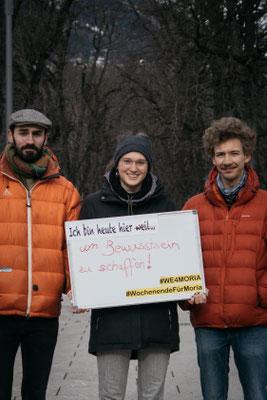 Ich bin heute hier weil...
um Bewusstsein
zu schaffen!
#WE4MORIA
#WochenendeFürMoria